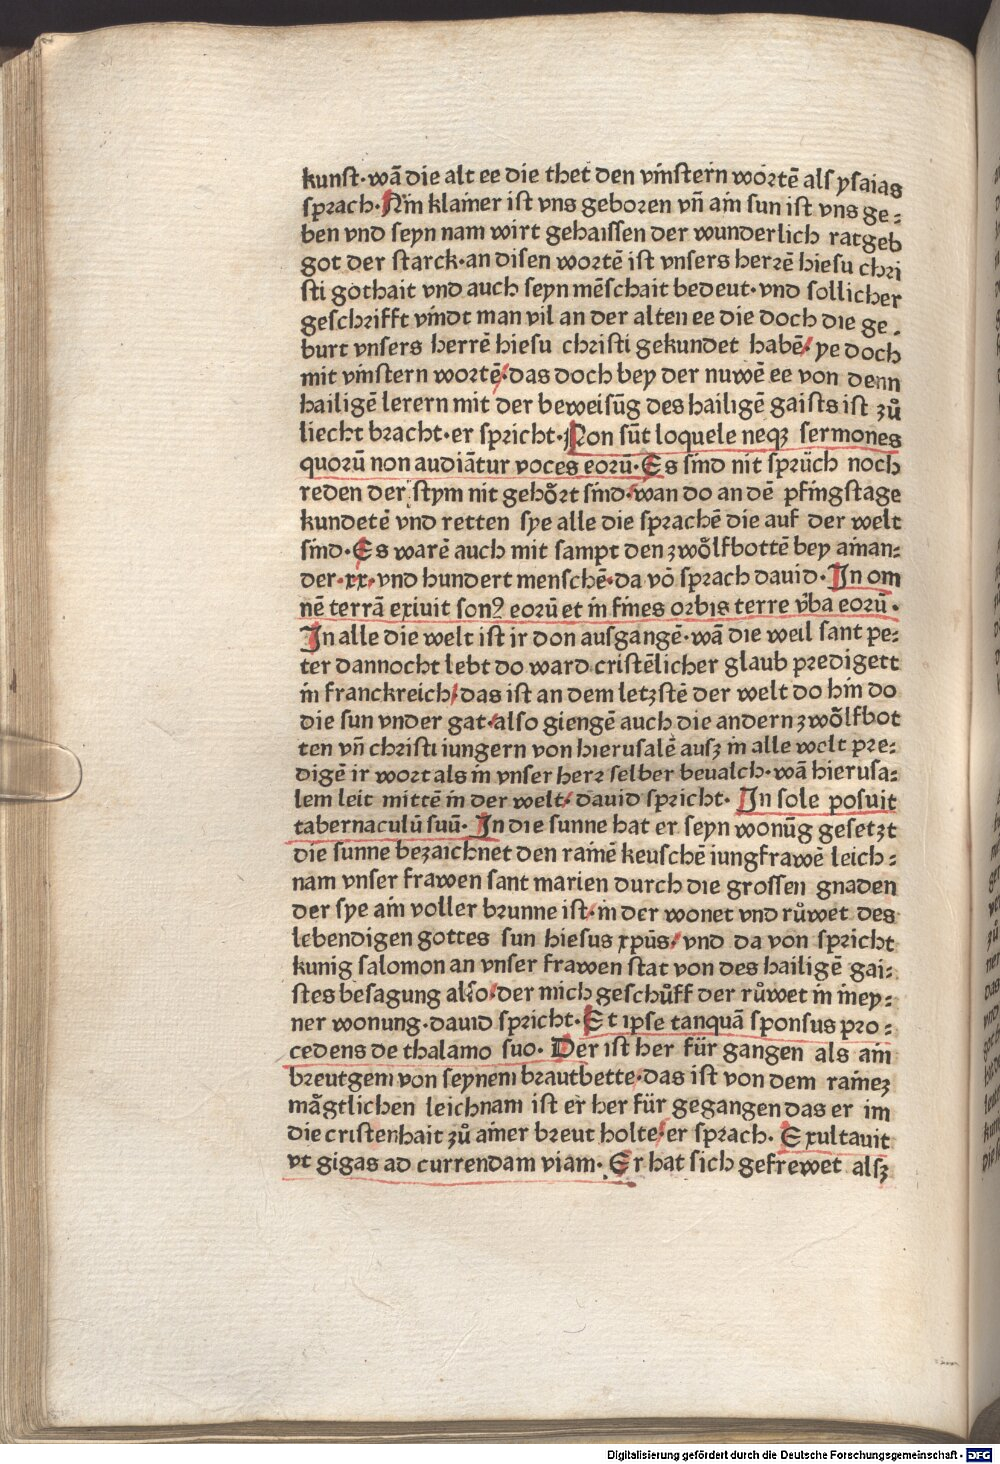 kunst·wā die alt ee die thet den vinstern wortē als ysaias
sprach·Ain klainer ist vns geboren vn̄ ain sun ist vns ge⸗
ben vnd seyn nam wirt gehaissen der wunderlich ratgeb
got der starck·an disen wortē ist vnsers herrē hiesu chri
sti gothait vnd auch seyn mēschait bedeut·vnd sollicher
geschrifft vindt man vil an der alten ee die doch die ge⸗
burt vnsers herrē hiesu christi gekundet habē/ ye doch
mit vinstern wortē/das doch bey der nuwē ee von denn
hailigē lerern mit der beweisūg des hailigē gaists ist zů
liecht bracht·er spricht·Non sūt loquele neqꝫ sermones
quorū non audiātur voces eorū·Es sind nit sprüch noch
reden der stym nit gehoͤrt sind·wan do an dē pfingstage
kundetē vnd retten sye alle die sprachē die auf der welt
sind·Es warē auch mit sampt den zwoͤlfbottē bey ainan⸗
der·xx·vnd hundert menschē·da vō sprach dauid·In om
nē terrā exiuit sonꝰ eorū et in fines orbis terre v̄ba eorū·
In alle die welt ist ir don ausgangē·wā die weil sant pe⸗
ter dannocht lebt do ward cristēlicher glaub predigett
in franckreich/das ist an dem letzstē der welt do hin do
die sun vnder gat·also giengē auch die andern zwoͤlfbot
ten vn̄ christi iungern von hierusalē ausz in alle welt pre⸗
digē ir wort als in vnser herr selber beualch·wā hierusa⸗
lem leit mittē in der welt/ dauid spricht· In sole posuit
tabernaculū suū· In die sunne hat er seyn wonūg gesetzt
die sunne bezaichnet den rainē keuschē iungfrawē leich⸗
nam vnser frawen sant marien durch die grossen gnaden
der sye ain voller brunne ist·in der wonet vnd růwet des
lebendigen gottes sun hiesus xpūs/ vnd da von spricht
kunig salomon an vnser frawen stat von des hailigē gai⸗
stes besagung also/der mich geschůff der růwet in mey⸗
ner wonung·dauid spricht·Et ipse tanquā sponsus pro⸗
cedens de thalamo suo· Der ist her für gangen als ain
breutgem von seynem brautbette·das ist von dem rainez
maͤgtlichen leichnam ist er her für gegangen das er im
die cristenhait zů ainer breut holte/er sprach· Exultauit
vt gigas ad currendam viam· Er hat sich gefrewet alsz
Digitalisierung gefördert durch die Deutsche Forschungsgemeinschaft - DFG